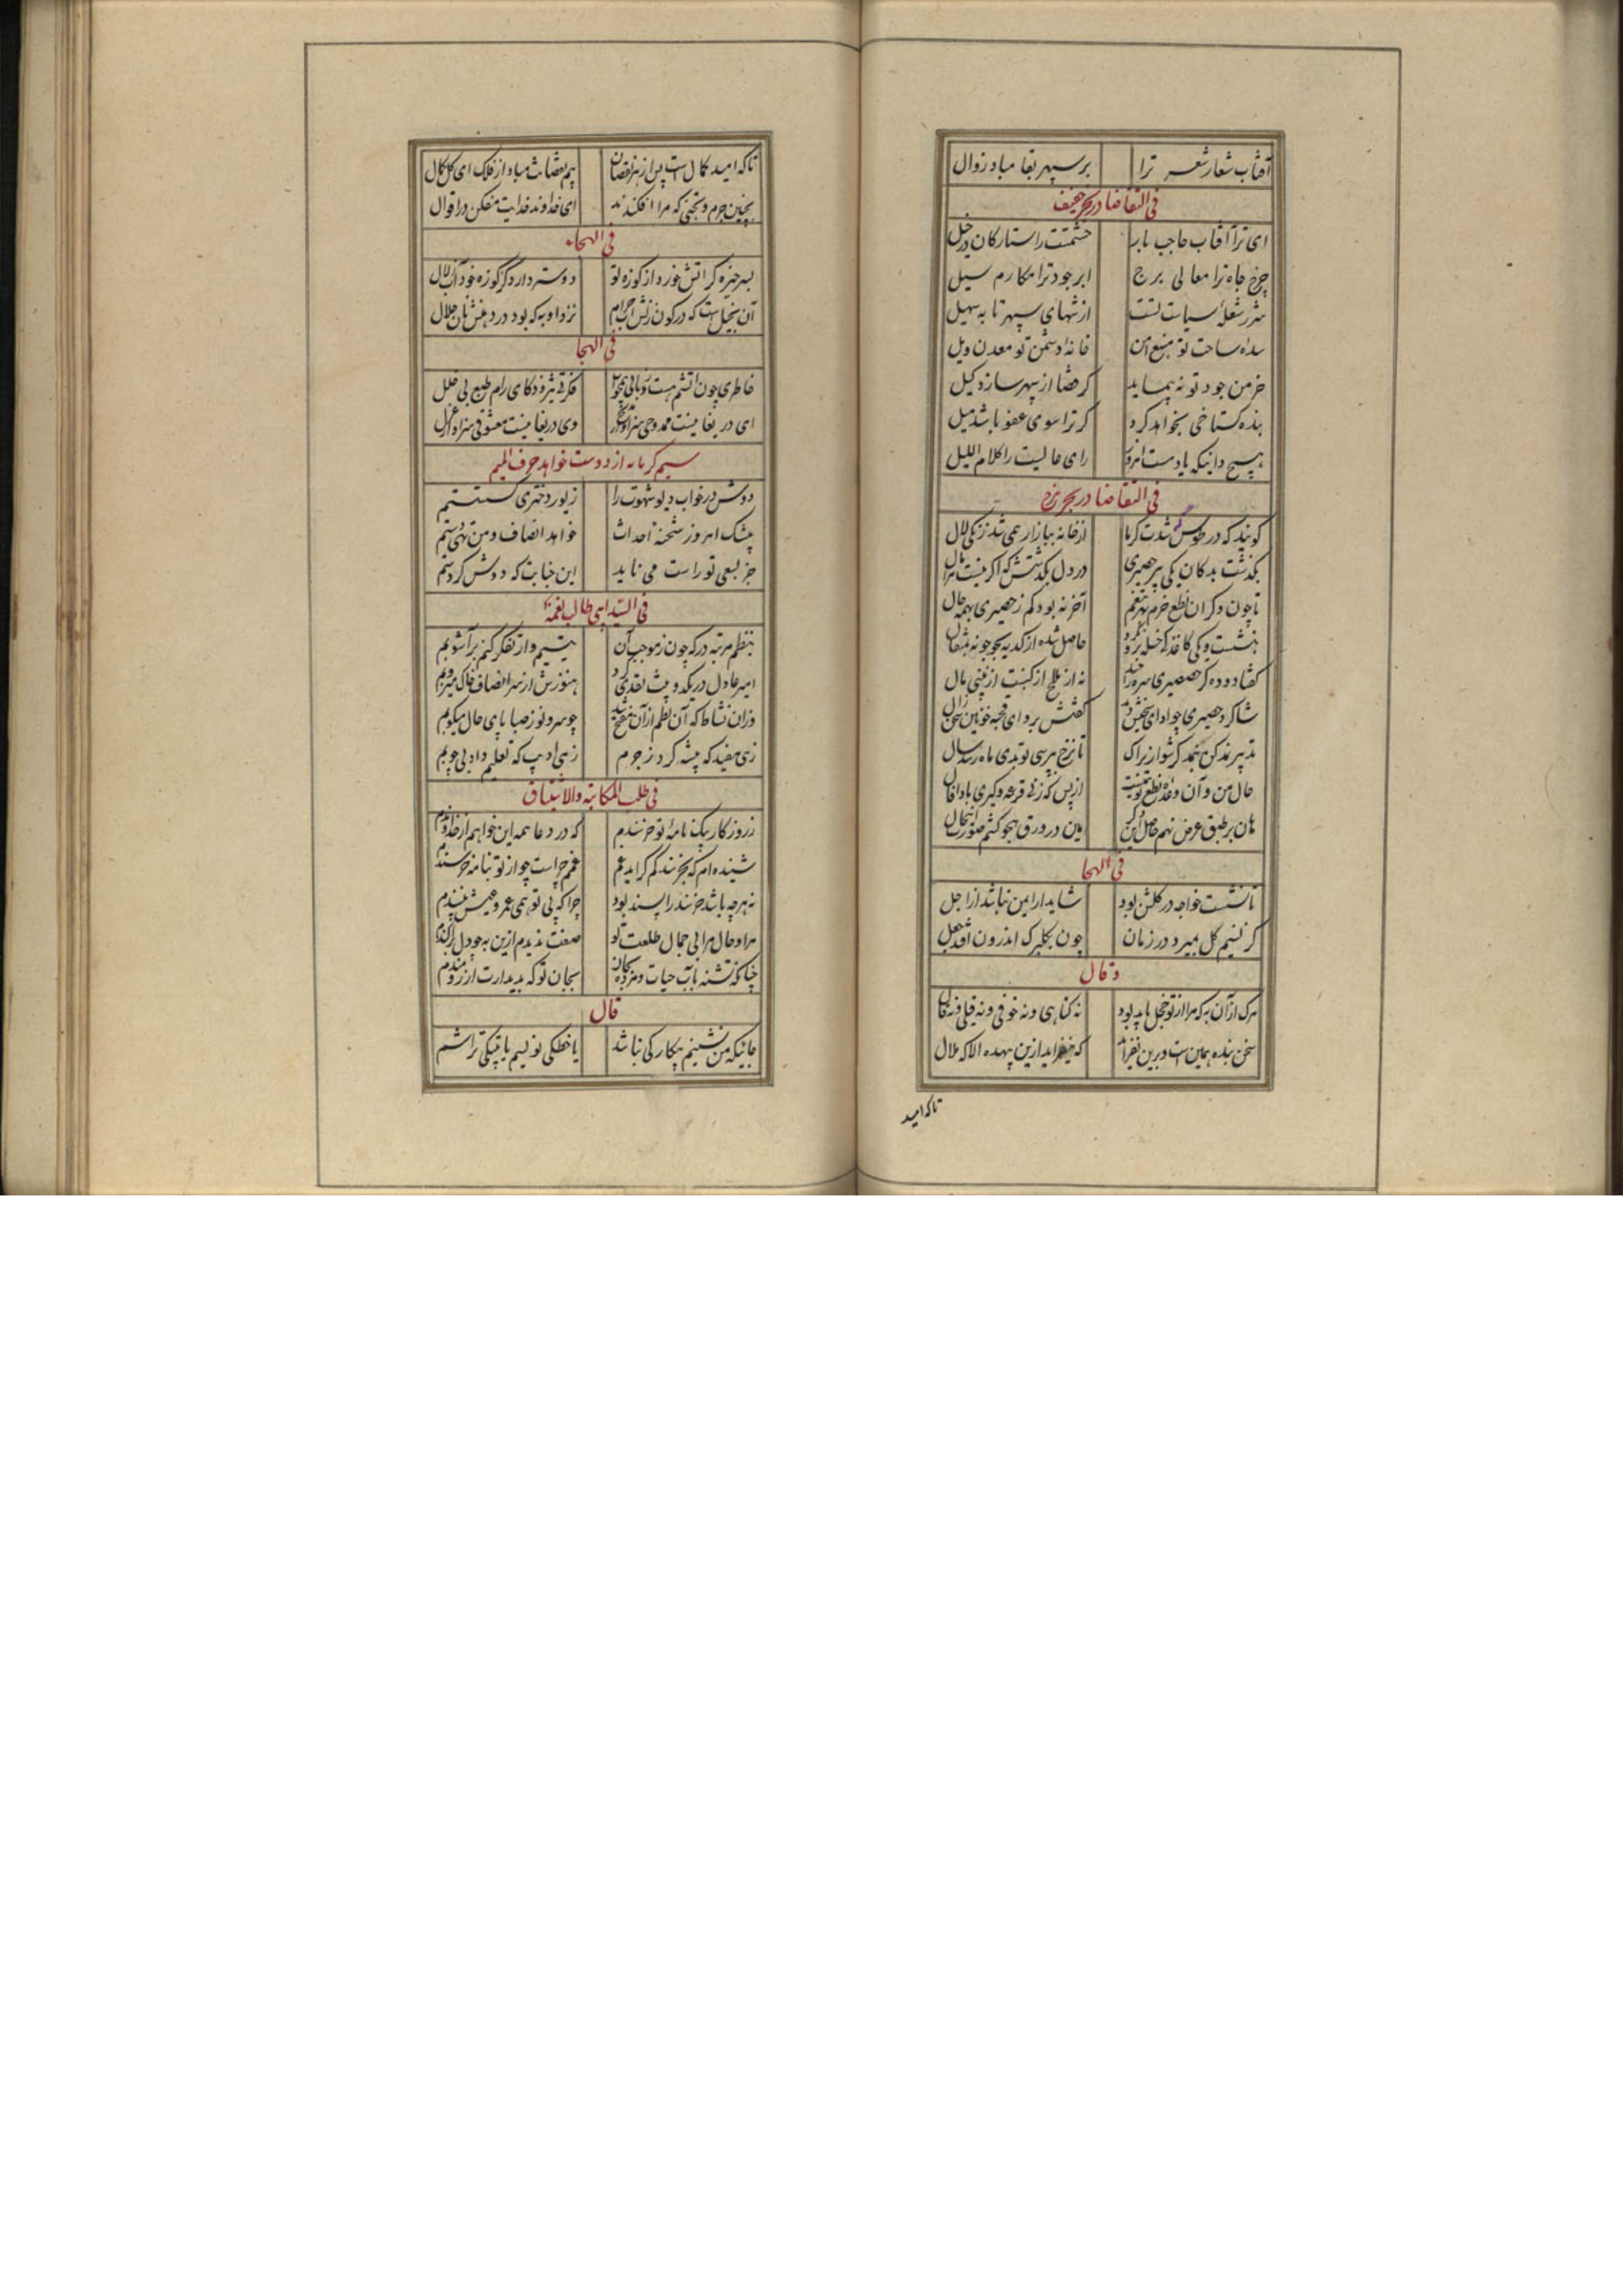 آفتاب شعار شعر ترا بر سپهر بقا مباد زوال
فی التقاضا در بحر خفیف
ای ترا آفتاب حاجب بار حشمتت را ستارگان در خیل
چرخ جاه ترا معالی برج ابر جود ترا مکارم سیل
شرر شعلهٔ سیاست تست از شهای سپهر تا به سهیل
سدهٔ ساحت تو منبع امن خانهٔ دشمن تو معدن ویل
خرمن جود تو نه پیماید گر قضا از سپهر سازد کیل
بنده گستاخی بخواهد کرد گر ترا سوی عفو باشد میل
هیچ دانی که یادت هست امروز رای عالیت را کلام اللیل
فی التقاضا در بحر هزج
گویند که در طوس گه شدت گرما از خانه ببازار همی شد زنکی لال
بگذشت بدکان یکی پیر حصیری در دل بگذشتش که اگر نیست مرا مال
تا چون دگران نطع خرم بهر تنعم آخر نه بود کم ز حصیری بهمه حال
بنشست و یکی کاغذکی حاصل شده از کدیه بجوجو نه بمثقال
گفتا ده ده گز حصیری سره را چند نه از بلخ از کنب از پنی نال
شاگرد حصیری چو ادای سخنش دید گفتش برو ای قحبه چونین سخن زال
تدبیر نمد کن بنمد گر شو ازیراک تا نرخ بپرسی تو بدی ماه رسد سال
حال من و آن وعدهٔ نطع تو همینست از بس که زنی قرعه و گیری بادا فال
هان بر طبق عرض نهم حاصل این ذکر هین در ورق هجو کشم صورت این حال
فی الهجا
تا نشست خواجه در گلشن بود شاید ار ایمن نباشد از اجل
کز نسیم گل بمیرد در زمان چون بگلبرگ اندرون افتد جعل
و قال
مرگ از آن به که مرا از تو خجل باید بود نه گناهی و نه خوفی و نه قیلی و نه قال
سخن بنده همین است و برین نفزاید که نیفزاید ازین بیهده الا که ملال
تا که امید
تا که امید کمال است پس از هر نقصان بیم نقصانت مباد از فلک ای کل کمال
بچنین جرم و تجنی که مرا افکندند ای خداوند خدایت مفکن در اقوال
فی الهجاء
بسر خیزه گر آتش خورد از کوزه تو دوستر دارد کز کوزه خود آب زلال
آن بخیل است که در کون زنش ایر حرام نزد او به که بود در دهنش نان حلال
فی الهجا
خاطری چون آتشم هست و زبانی همچو آب فکرتی تیز و ذکای رام و طبع بی خلل
ای دریغا نیست ممدوحی سزاوار مدیح وی دریغا نیست معشوقی سزاوار غزل
سیم گرمابه از دوست خواهد حرف المیم
دوش در خواب دیو شهوت را زیور دختری گسستستم
پیشک امروز شحنهٔ احداث خواهد انصاف و من تهی دستم
جز بسعی تو راست می ناید این خیانت که دوش کردستم
فی السید ابی طالب نعمه
بنظم مرتبه در که چون ز موجب آن بیتیم وار تفکر کنم بر آشوبم
امیر عادل در یکدو بیت نقدی کرد هنوزش از سر انصاف خاک میروبم
وزان نشاط که آن نظم از آن منقح شد چو سرو نوز صبا پای حال میکوبم
زهی مفید که پیشه کرد ز جرم زهی ادیب که تعلیم داد بی چوبم
فی طلب المکاتبه و الاشتیاق
ز روزگار بیک نامهٔ تو خرسندم که در دعا همه این خواهم از خداوندم
شنیده‌ام که بخرسند کم گراید غم غمم چراست چو از تو بنامه خرسندم
نه هر چه باشد خرسند را پسند بود چرا که بی تو همی عمر و عیش نپسندم
مراد حال مرا بی جمال طلعت تو صفت ندیدم ازین به چو دل پراگندم
چنانکه تشنه بآب حیات و مرده بجان بجان تو که بدیدارت آرزومندم
قال
جائیکه من نشینم بیکار کی نباشد یا خطکی نویسم یا بتیکی تراشم